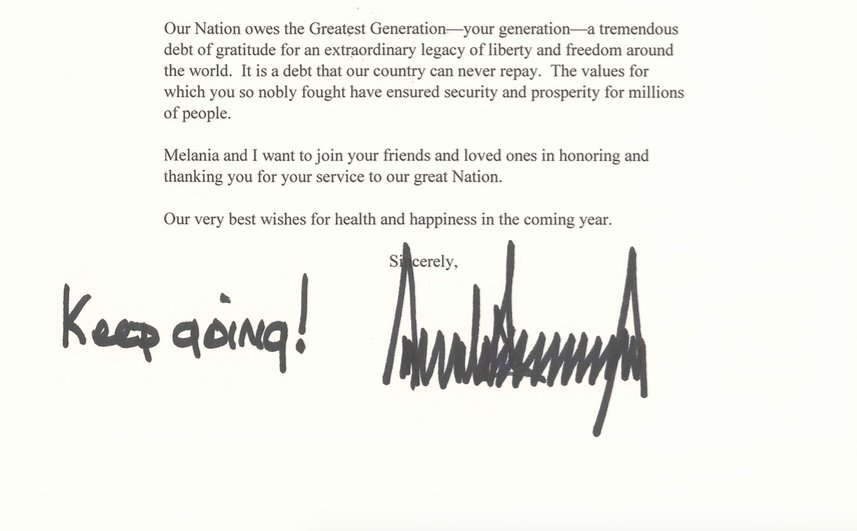 Our Nation owes the Greatest Generation—your generation—a tremendous
debt of gratitude for an extraordinary legacy of liberty and freedom around
the world.  It is a debt that our country can never repay.  The values for
which you so nobly fought have ensured security and prosperity for millions
of people.
Melania and I want to join your friends and loved ones in honoring and
thanking you for your service to our great Nation.
Our very best wishes for health and happiness in the coming year.
Sincerely,
Keep going!